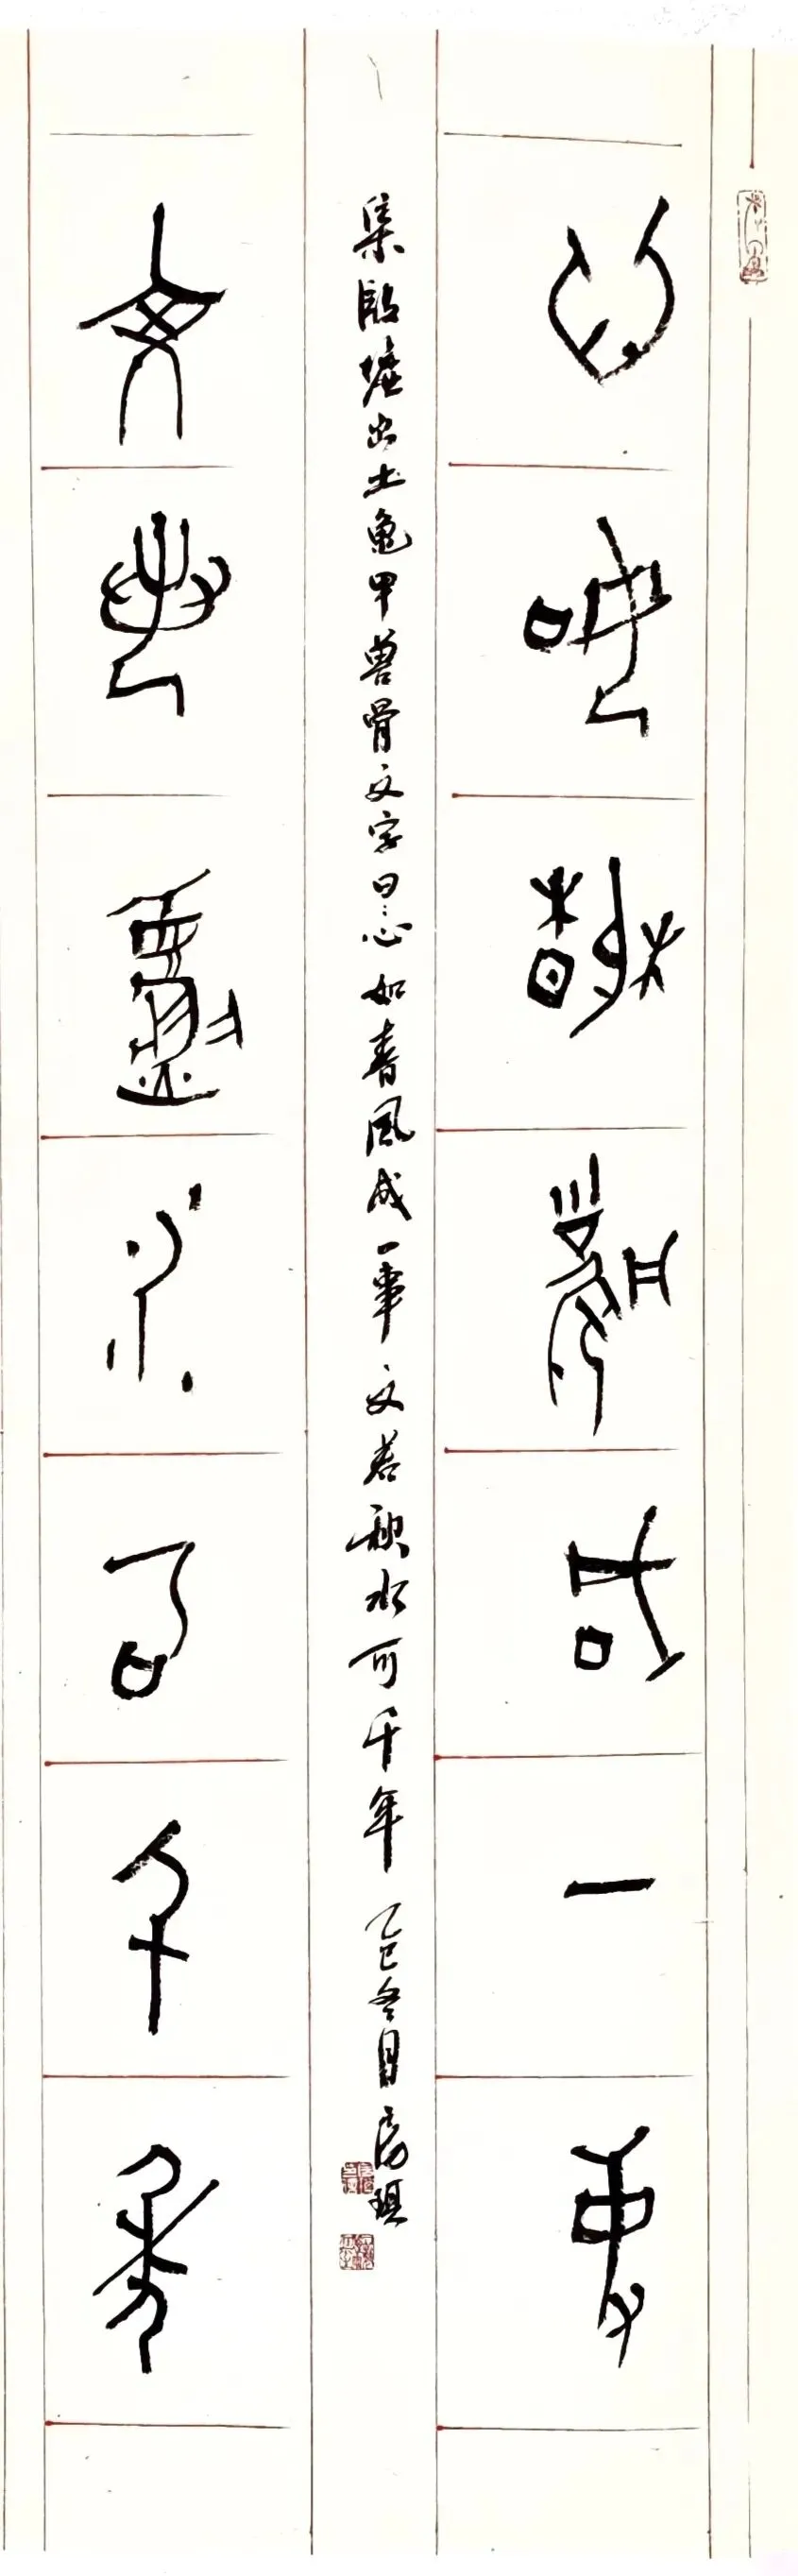 心如春風成一事
集殷墟出土龜甲獸骨文字曰心如春風成一事文若秋水可千年乙巳冬月房
文若秋水可千年